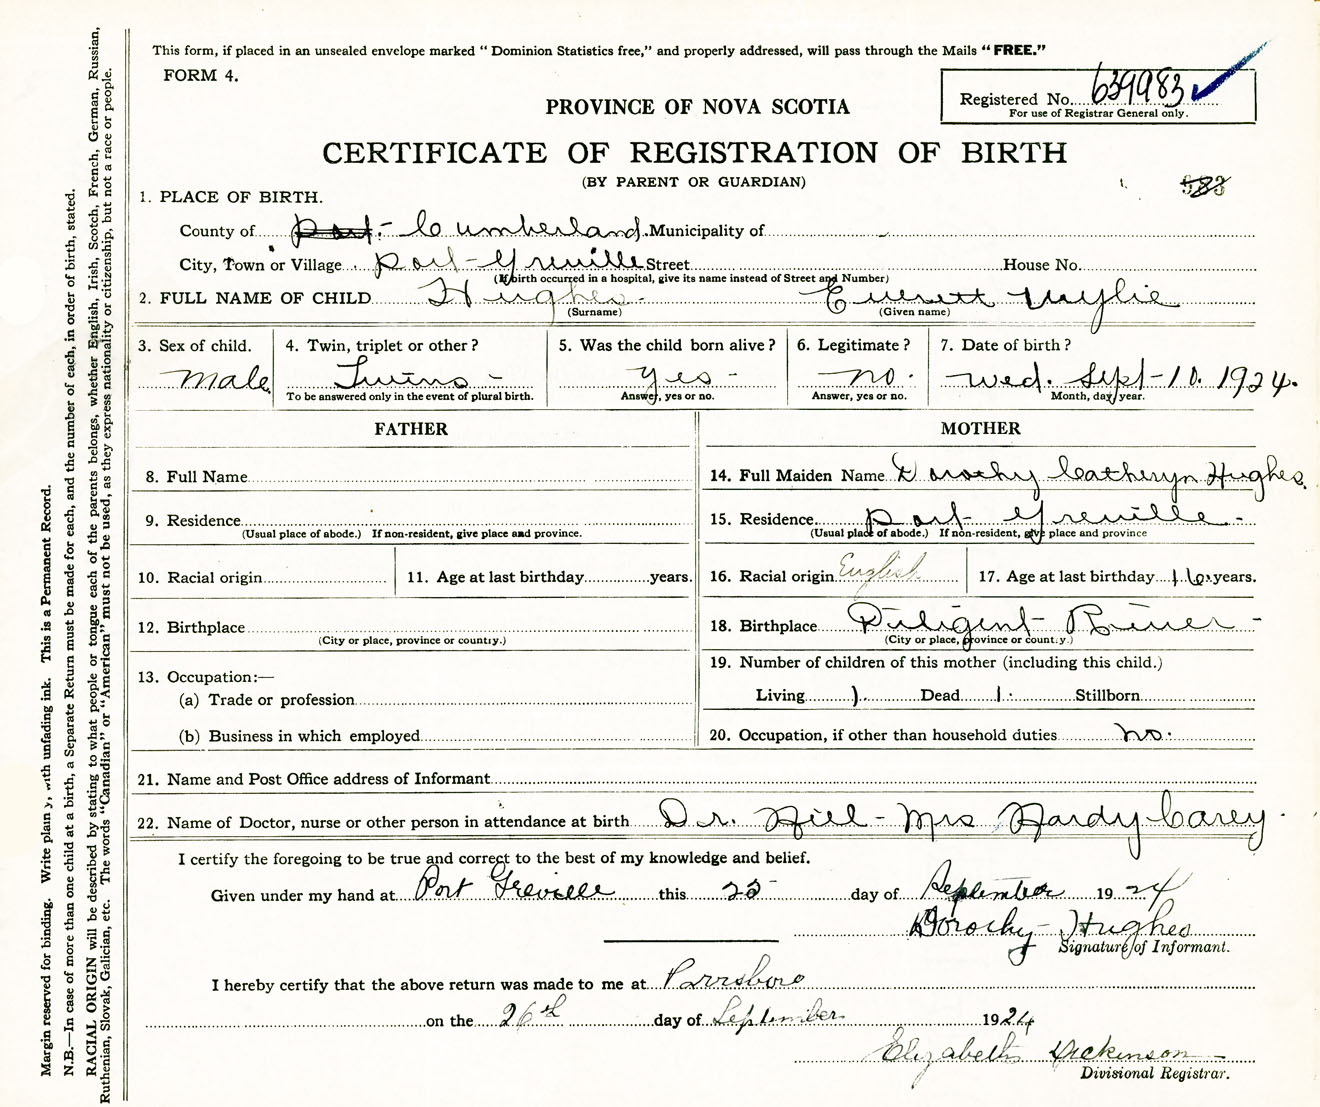 This form, if placed in an unsealed envelope marked “Dominion Statistics free,” and properly addressed, will pass through the Mails “FREE.”
FORM 4.
Registered No. 639983
For use of Registrar General only.
PROVINCE OF NOVA SCOTIA
CERTIFICATE OF REGISTRATION OF BIRTH
(BY PARENT OR GUARDIAN)
583
1. PLACE OF BIRTH.
County of Port - Cumberland. Municipality of
City, Town or Village Port - Greville Street House No.
(If birth occurred in a hospital, give its name instead of Street and Number)
2. FULL NAME OF CHILD Hughes - Everett Wylie
(Surname) (Given name)
3. Sex of child. 4. Twin, triplet or other? 5. Was the child born alive? 6. Legitimate? 7. Date of birth?
Male Twins - Yes - no. Wed. Sept - 10. 1924.
To be answered only in the event of plural birth. Answer, yes or no. Answer, yes or no. Month, day, year.
FATHER MOTHER
8. Full Name 14. Full Maiden Name Dorothy Catheryn Hughes.
9. Residence 15. Residence Port Greville -
(Usual place of abode.) If non-resident, give place and province. (Usual place of abode.) If non-resident, give place and province
10. Racial origin 11. Age at last birthday years. 16. Racial origin English 17. Age at last birthday 16 years.
12. Birthplace 18. Birthplace Diligent River -
(City or place, province or country.) (City or place, province or country.)
13. Occupation:— 19. Number of children of this mother (including this child.)
(a) Trade or profession Living 1. Dead 1. Stillborn
(b) Business in which employed 20. Occupation, if other than household duties no.
21. Name and Post Office address of Informant
22. Name of Doctor, nurse or other person in attendance at birth Dr. Hill - Mrs Hardy Carey.
I certify the foregoing to be true and correct to the best of my knowledge and belief.
Given under my hand at Port Greville this 25 day of September 1924
Dorothy Hughes
Signature of Informant.
I hereby certify that the above return was made to me at Parrsboro
on the 26th day of September 1924
Elizabeth Dickinson
Divisional Registrar.
Margin reserved for binding. Write plainly, with unfading ink. This is a Permanent Record.
N.B.—In case of more than one child at a birth, a Separate Return must be made for each, and the number of each, in order of birth, stated.
RACIAL ORIGIN will be described by stating to what people or tongue each of the parents belongs, whether English, Irish, Scotch, French, German, Russian,
Ruthenian, Slovak, Galician, etc. The words “Canadian” or “American” must not be used, as they express nationality or citizenship, but not a race or people.